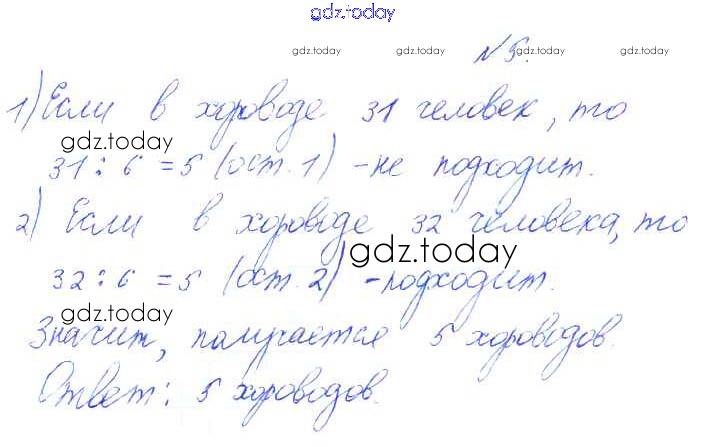 gdz.today
gdz.today gdz.today gdz.today
№5.
1) Если в хороводе 31 человек, то
gdz.today gdz.today
31 : 6 = 5 (ост. 1) - не подходит.
2) Если в хороводе 32 человека, то
gdz.today
32 : 6 = 5 (ост. 2) - подходит.
gdz.today gdz.today
Значит, получается 5 хороводов.
gdz.today gdz.today
Ответ: 5 хороводов.